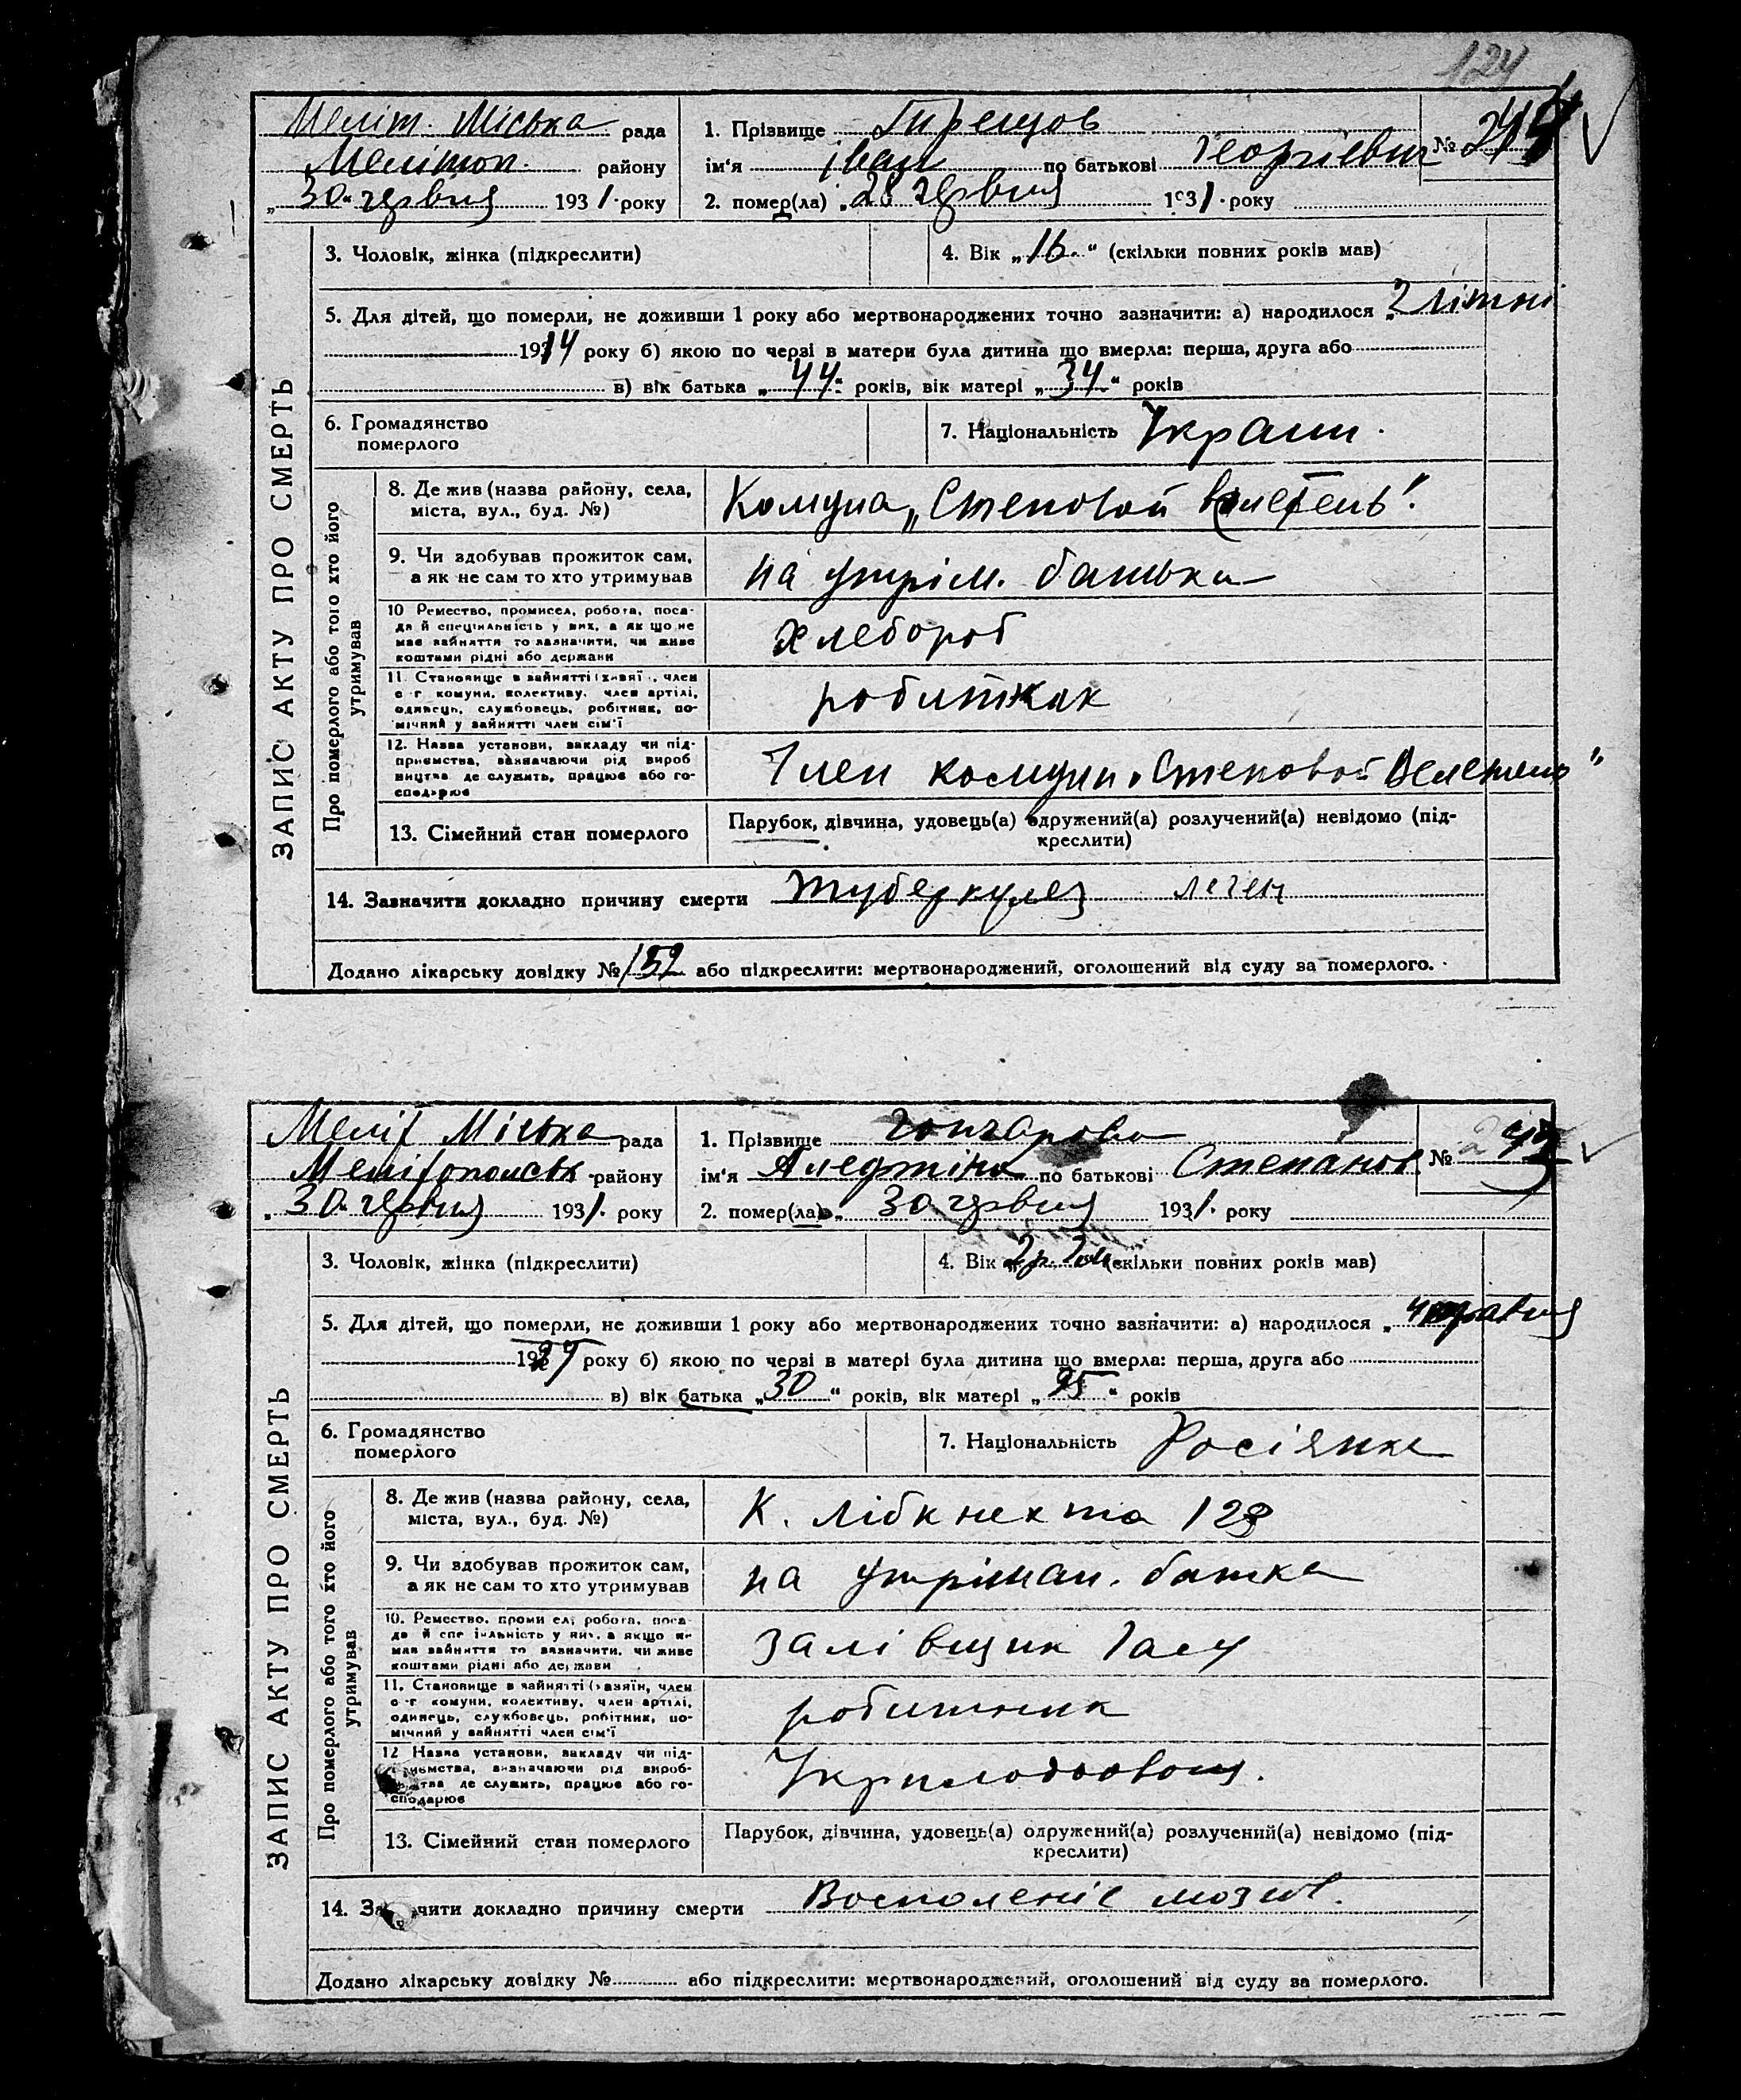 124
Меліт. Міська рада
Мелітоп. району
„30“ червня 1931 року
1. Прізвище
ім'я Іван по батькові Георгіевич
№ 244
2. помер(ла) „28 червня 1931 року
ЗАПИС АКТУ ПРО СМЕРТЬ
3. Чоловік, жінка (підкреслити)
4. Вік „16“ (скільки повних років мав)
5. Для дітей, що померли, не доживши 1 року або мертвонароджених точно зазначити: а) народилося „2 літні
1914 року б) якою по черзі в матери була дитина що вмерла: перша, друга або
в) вік батька „44“ років, вік матері „34“ років
6. Громадянство померлого
7. Національність Украин.
Про померлого або того хто його утримував
8. Де жив (назва району, села, міста, вул., буд. №)
Комуна „Степовой
9. Чи здобував прожиток сам, а як не сам то хто утримував
на утрім. батька
10 Ремество, промисел, робота, посада й спеціяльність у них, а як що не має зайняття то зазначити, чи живе коштами рідні або держави
Хлебороб
11. Становище в зайнятті (хазяїн, член с-г комуни, колективу, член артілі, одинець, службовець, робітник, помічний у зайнятті член сім'ї
робитник
12. Назва установи, закладу чи підприємства, зазначаючи рід виробництва де служить, працює або господарює
Член комуни „Степовой
13. Сімейний стан померлого
Парубок, дівчина, удовець(а) одружений(а) розлучений(а) невідомо (підкреслити)
14. Зазначити докладно причину смерти туберкулез легень
Додано лікарську довідку № 152 або підкреслити: мертвонароджений, оголошений від суду за померлого.
Меліт Міська рада
Мелітопольськ району
„30“ червня 1931. року
1. Прізвище Гончарова
ім'я Алефтіна по батькові Степанов
№ 245
2. помер(ла) „30 червня 1931. року
ЗАПИС АКТУ ПРО СМЕРТЬ
3. Чоловік, жінка (підкреслити)
4. Вік „2р. 2м (скільки повних років мав)
5. Для дітей, що померли, не доживши 1 року або мертвонароджених точно зазначити: а) народилося „4
1929 року б) якою по черзі в матері була дитина що вмерла: перша, друга або
в) вік батька „30“ років, вік матері „25“ років
6. Громадянство померлого
7. Національність Росіянка
Про померлого або того хто його утримував
8. Де жив (назва району, села, міста, вул., буд. №)
К. Лібкнехта 128
9. Чи здобував прожиток сам, а як не сам то хто утримував
на утріман. батька
10. Ремество, промисел, робота, посада й спеціяльність у них, а якщо не має зайняття то зазначити, чи живе коштами рідні або держави
залівщик
11. Становище в зайнятті (хазяїн, член с-г комуни, колективу, член артілі, одинець, службовець, робітник, помічний у зайнятті член сім'ї
робитник
12 Назва установи, закладу чи підприємства, зазначаючи рід виробництва де служить, працює або господарює
Укрплодоовощ.
13. Сімейний стан померлого
Парубок, дівчина, удовець(а) одружений(а) розлучений(а) невідомо (підкреслити)
14. Зазначити докладно причину смерти Воспаленіе мозгов.
Додано лікарську довідку № або підкреслити: мертвонароджений, оголошений від суду за померлого.